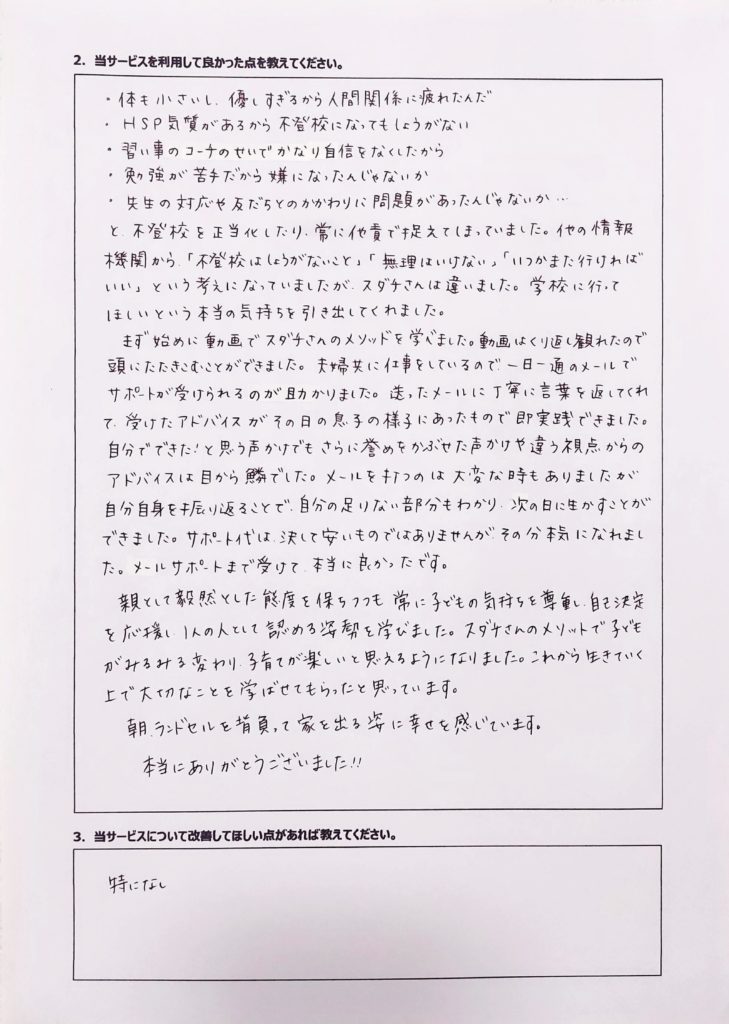 2. 当サービスを利用して良かった点を教えてください。
・体も小さいし、優しすぎるから人間関係に疲れたんだ
・HSP気質があるから不登校になってもしょうがない
・習い事のコーチのせいでかなり自信をなくしたから
・勉強が苦手だから嫌になったんじゃないか
・先生の対応や友だちとのかかわりに問題があったんじゃないか…
と、不登校を正当化したり、常に他責で捉えてしまっていました。他の情報
機関から、「不登校はしょうがないこと」「無理はいけない」「いつかまた行ければ
いい」という考えになっていましたが、スダチさんは違いました。学校に行って
ほしいという本当の気持ちを引き出してくれました。
まず始めに動画でスダチさんのメソッドを学べました。動画はくり返し観れたので
頭にたたきこむことができました。夫婦共に仕事をしているので、一日一通のメールで
サポートが受けられるのが助かりました。送ったメールに丁寧に言葉を返してくれ
て、受けたアドバイスがその日の息子の様子にあったもので即実践できました。
自分でできた!と思う声かけでもさらに誉めをかぶせた声かけや違う視点からの
アドバイスは目から鱗でした。メールを打つのは大変な時もありましたが
自分自身を振り返ることで、自分の足りない部分もわかり、次の日に生かすことが
できました。サポート代は、決して安いものではありませんが、その分本気になれまし
た。メールサポートまで受けて、本当に良かったです。
親として毅然とした態度を保ちつつも、常に子どもの気持ちを尊重し、自己決定
を応援し、1人の人として認める姿勢を学びました。スダチさんのメソットで子ども
がみるみる変わり、子育てが楽しいと思えるようになりました。これから生きていく
上で大切なことを学ばせてもらったと思っています。
朝、ランドセルを背負って家を出る姿に幸せを感じています。
本当にありがとうございました!!
3. 当サービスについて改善してほしい点があれば教えてください。
特になし